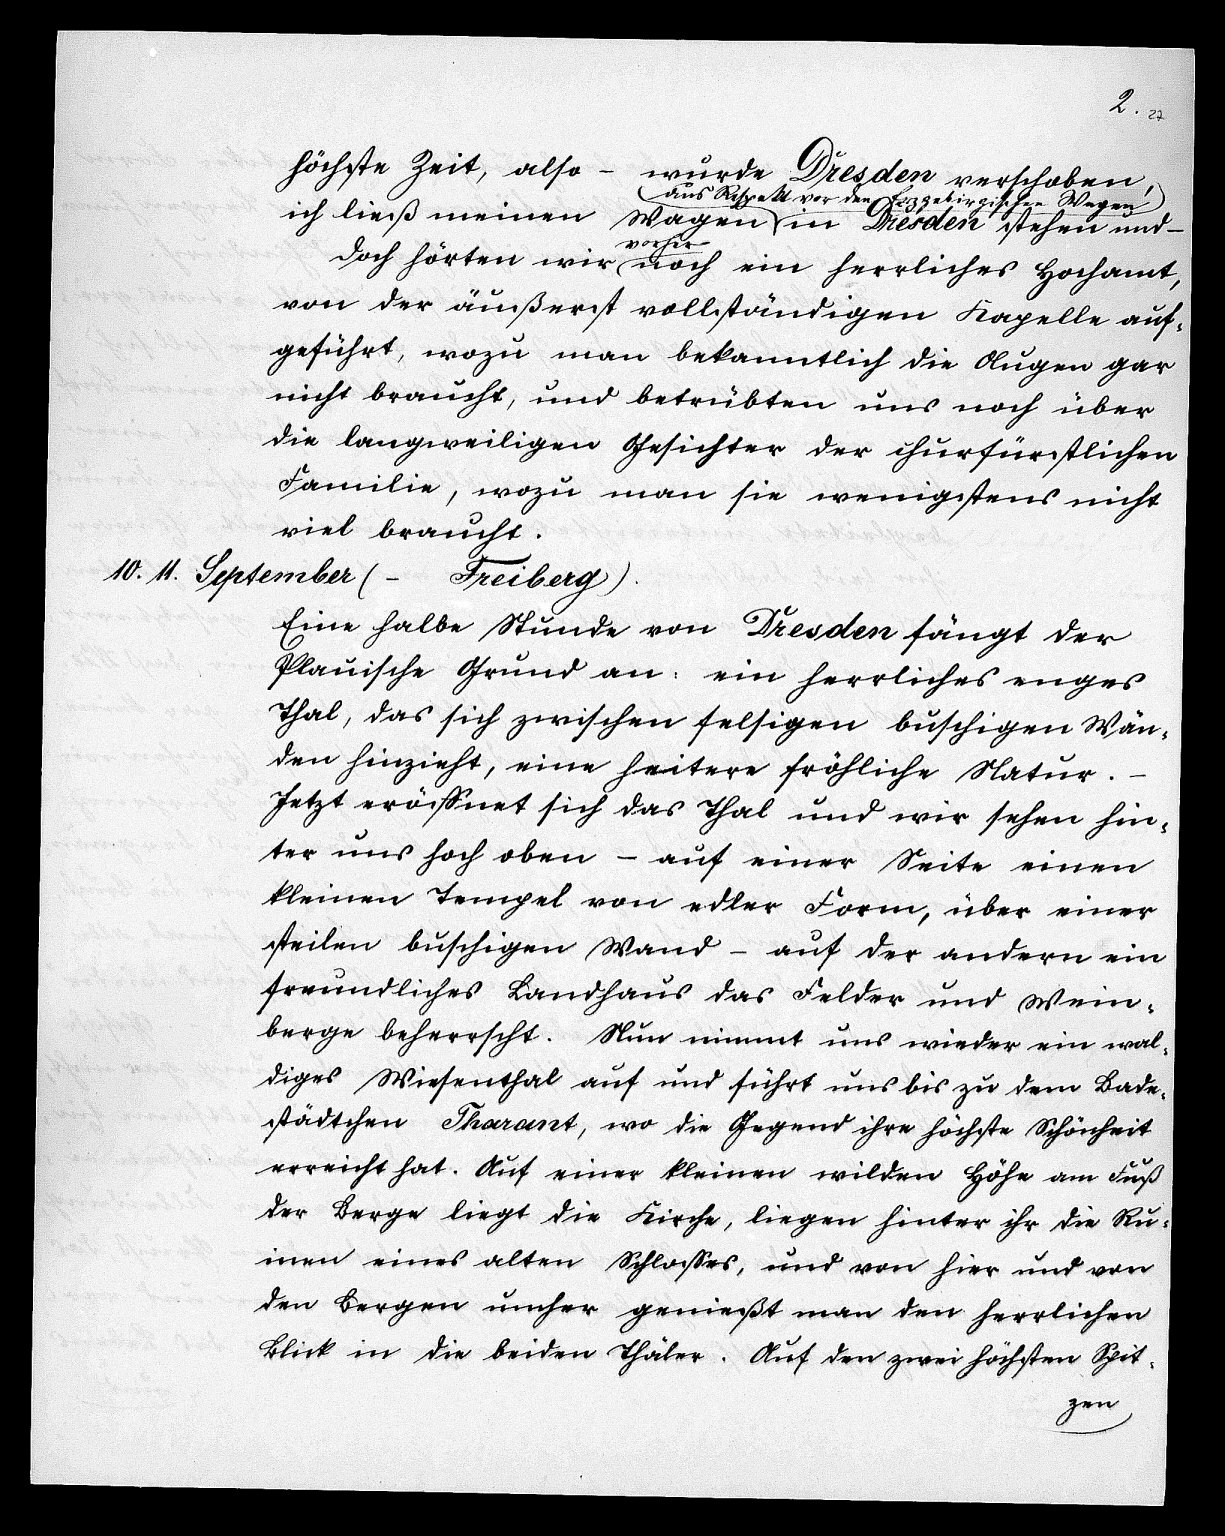 2. 27
höchste Zeit, also – wurde Dresden verschoben,
(aus Respekt vor den Erzgebirgischen Wegen)
ich ließ meinen Wagen in Dresden stehen und –
vorher
doch hörten wir noch ein herrliches Hochamt,
von der äußerst vollständigen Kapelle auf-
geführt, wozu man bekanntlich die Augen gar
nicht braucht, und betrübten uns noch über
die langweiligen Gesichter der churfürstlichen
Familie, wozu man sie wenigstens nicht
viel braucht.
10. 11. September (– Freiberg).
Eine halbe Stunde von Dresden fängt der
Plauische Grund an: ein herrliches enges
Thal, das sich zwischen felsigen buschigen Wän-
den hinzieht, eine heitere fröhliche Natur. –
Jetzt eröffnet sich das Thal und wir sehen hin-
ter uns hoch oben – auf einer Seite einen
kleinen Tempel von edler Form, über einer
steilen buschigen Wand – auf der andern ein
freundliches Landhaus das Felder und Wein-
berge beherrscht. Nun nimmt uns wieder ein wal-
diges Wiesenthal auf und führt uns bis zu dem Bade-
städtchen Tharant, wo die Gegend ihre höchste Schönheit
erreicht hat. Auf einer kleinen wilden Höhe am Fuß
der Berge liegt die Kirche, liegen hinter ihr die Ru-
inen eines alten Schlosses, und von hier und von
den Bergen umher genießt man den herrlichen
Blick in die beiden Thäler. Auf den zwei höchsten Spit-
zen